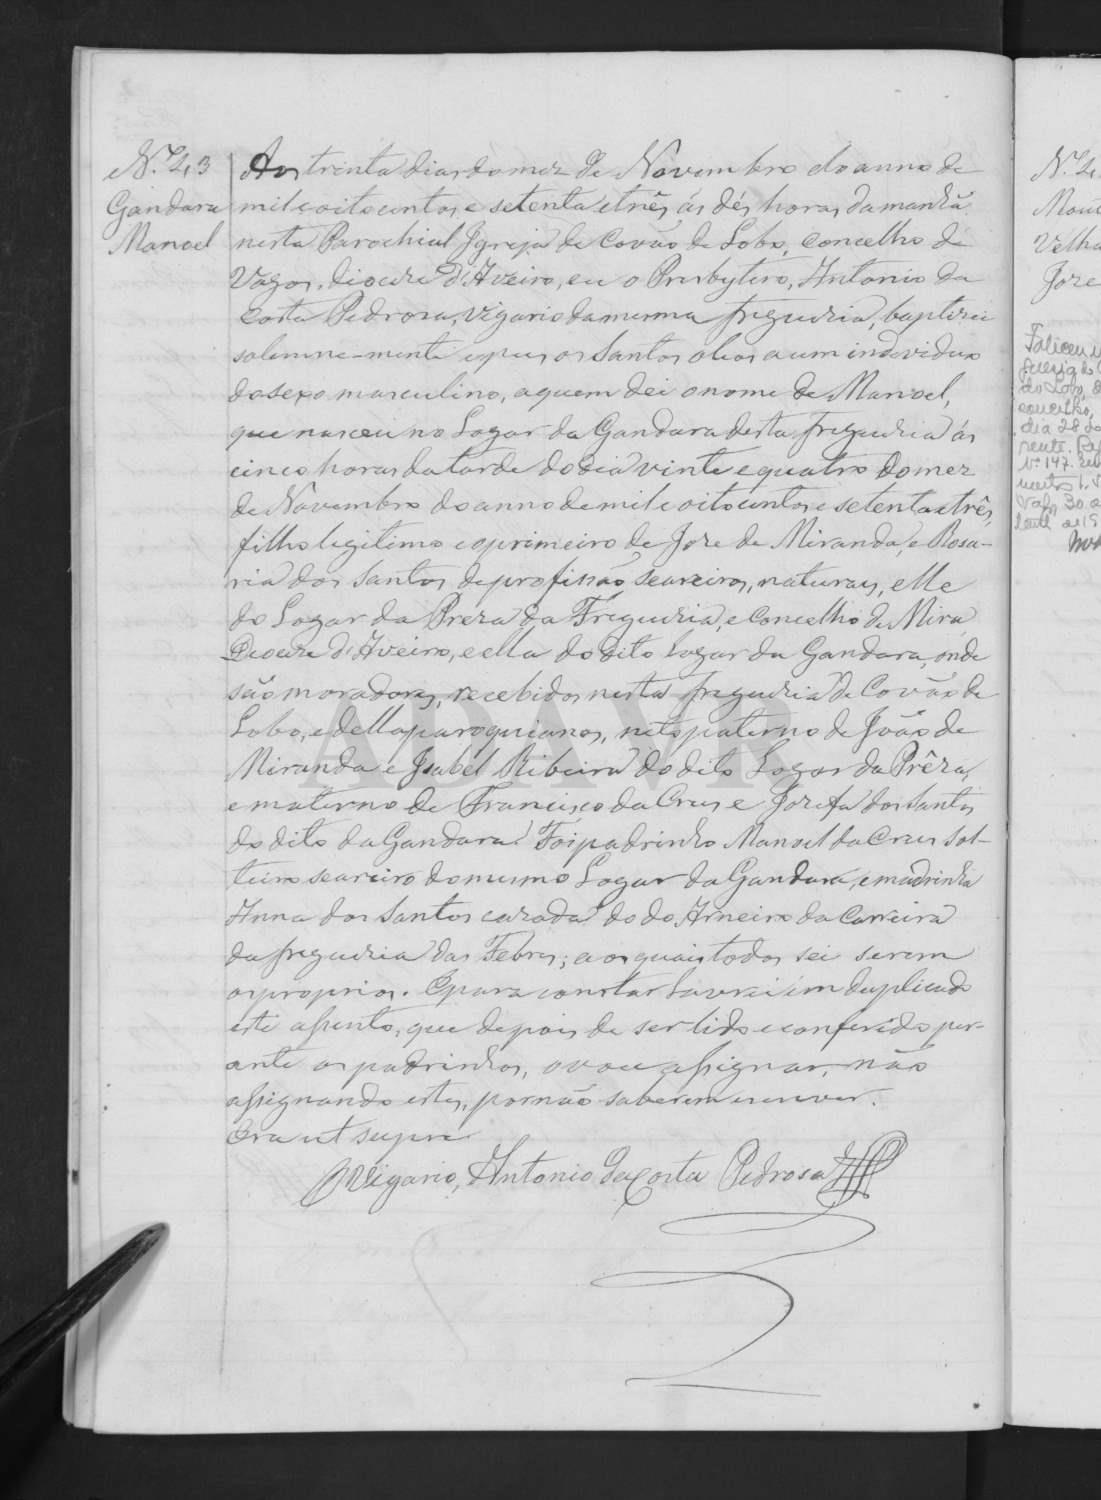 N.º 43
Gandara
Manoel
Aos trinta dias do mez de Novembro do anno de
mil e oito centos e setenta e três ás dés horas da manhã
nesta Parochial Igreja de Covão de Lobo, Concelho de
Vagos, Diocese d'Aveiro, eu o Presbytero, Antonio da
Costa Pedrosa, Vigario da mesma freguezia, baptizei
solemne-mente e pus os Santos oleos a um individuo
do sexo masculino, a quem dei o nome de Manoel,
que nasceu no Logar da Gandara desta freguezia ás
cinco horas da tarde do dia vinte e quatro do mez
de Novembro do anno de mil e oito centos e setenta e três,
filho legitimo e o primeiro de Jose de Miranda, e Rosa-
ria dos Santos de profissão seareiros, naturaes, elle
do Logar da Preza da Freguezia, e Concelho de Mira
Diocese d'Aveiro, e ella do dito Logar da Gandara, onde
são moradores, recebidos nesta freguezia de Covão de
Lobo, e della paroquianos, neto paterno de João de
Miranda e Isabel Ribeira do dito Logar da Prêza,
e materno de Francisco da Cruz e Jozefa dos Santos
do dito da Gandara. Foi padrinho Manoel da Cruz sol-
teiro seareiro do mesmo Logar da Gandara, e madrinha
Anna dos Santos cazada do do Arneiro da Carreira
da freguezia das Febres; e os quais todos sei serem
os proprios. E para constar lavrei em duplicado
este assento, que depois de ser lido e conferido per-
ante os padrinhos, o vou assignar, não
assignando estes, por não saberem escrever.
Era ut supra
O Vigario, Antonio da Costa Pedrosa
ADAVR
N.º 4
Velha
Joze
Faleceu
do Lobo, d
concelho,
dia 28 do
N.º 147.
30